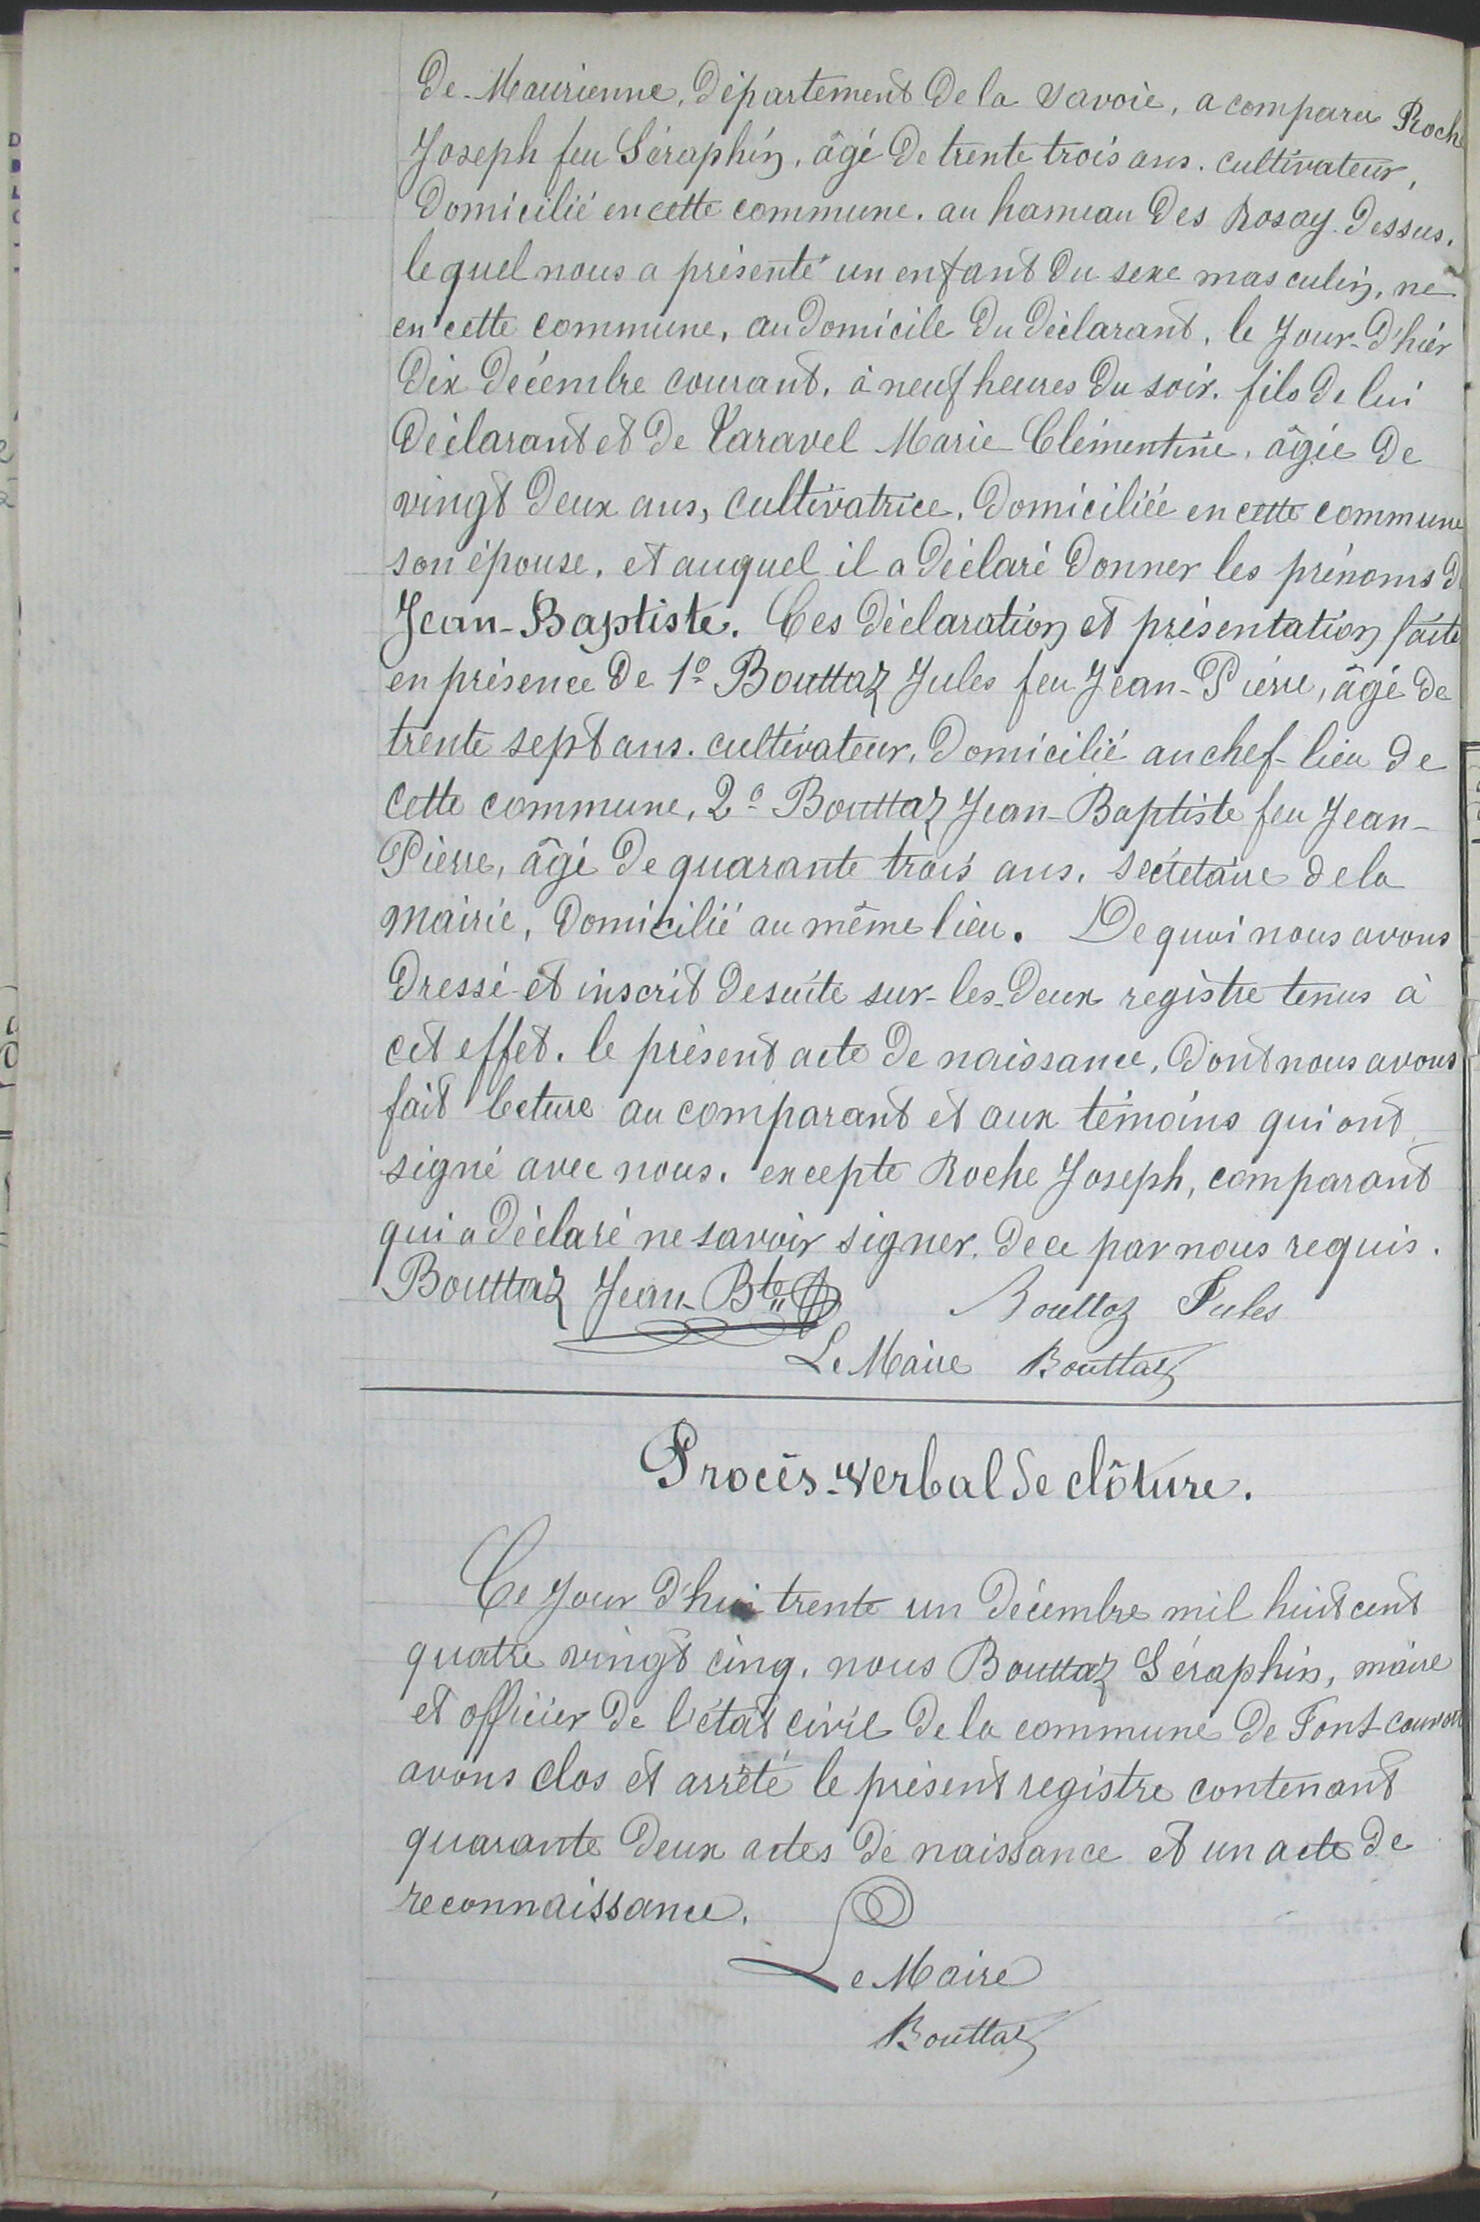 de-Maurienne, département de la Savoie, a comparu Roche
Joseph feu Séraphin, âgé de trente trois ans, cultivateur,
domicilié en cette commune, au hameau des Rosay-dessus,
lequel nous a présenté un enfant du sexe masculin, né
en cette commune, au domicile du déclarant, le jour-d'hier
dix décembre courant, à neuf heures du soir, fils de lui
déclarant et de Varavel Marie Clémentine, âgée de
vingt deux ans, cultivatrice, domiciliée en cette commune
son épouse, et auquel il a déclaré donner les prénoms de
Jean-Baptiste. Ces déclaration et présentation faite
en présence de 1º Bouttaz Jules feu Jean-Pierre, âgé de
trente sept ans, cultivateur, domicilié au chef-lieu de
cette commune, 2º Bouttaz Jean-Baptiste feu Jean-
Pierre, âgé de quarante trois ans, secrétaire de la
mairie, domicilié au même lieu. De quoi nous avons
dressé et inscrit desuite sur-les-deux registre tenus à
cet effet, le présent acte de naissance, dont nous avons
fait lecture au comparant et aux témoins qui ont
signé avec nous, excepté Roche Joseph, comparant
qui a déclaré ne savoir signer, de ce par nous requis.
Bouttaz Jean-Bte Bouttaz Jules
Le Maire Bouttaz
Procès-verbal de clôture.
Ce jour d'hui trente un décembre mil huit cent
quatre vingt cinq, nous Bouttaz Séraphin, maire
et officier de l'état civil de la commune de Fontcouverte
avons clos et arrêté le présent registre contenant
quarante deux actes de naissance et un acte de
reconnaissance.
Le Maire
Bouttaz